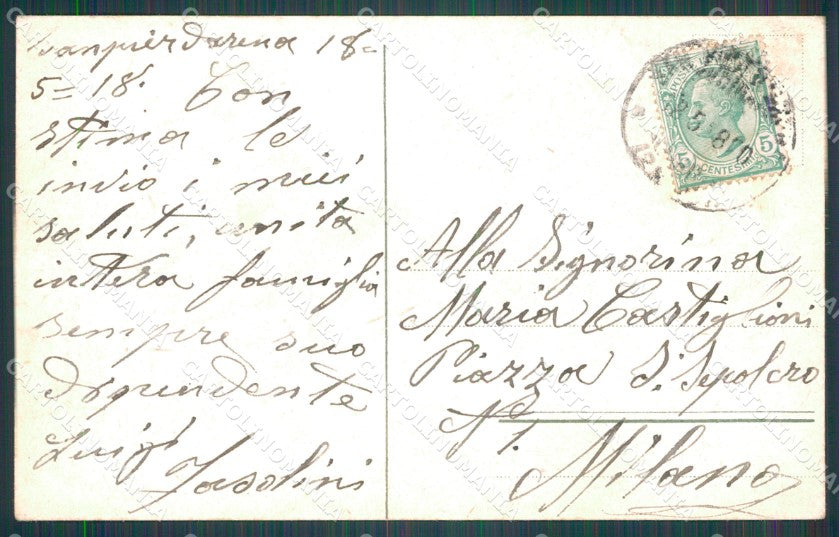 Sanpierdarena 18=
5=18. Con
stima le
invio i miei
saluti, unita
intera famiglia
sempre suo
dipendente
Luigi
Alla Signorina
Maria Castiglioni
Piazza S. Sepolcro
N. 1.
Milano
POSTE
5
CENTESIMI
CARTOLINOMANIA